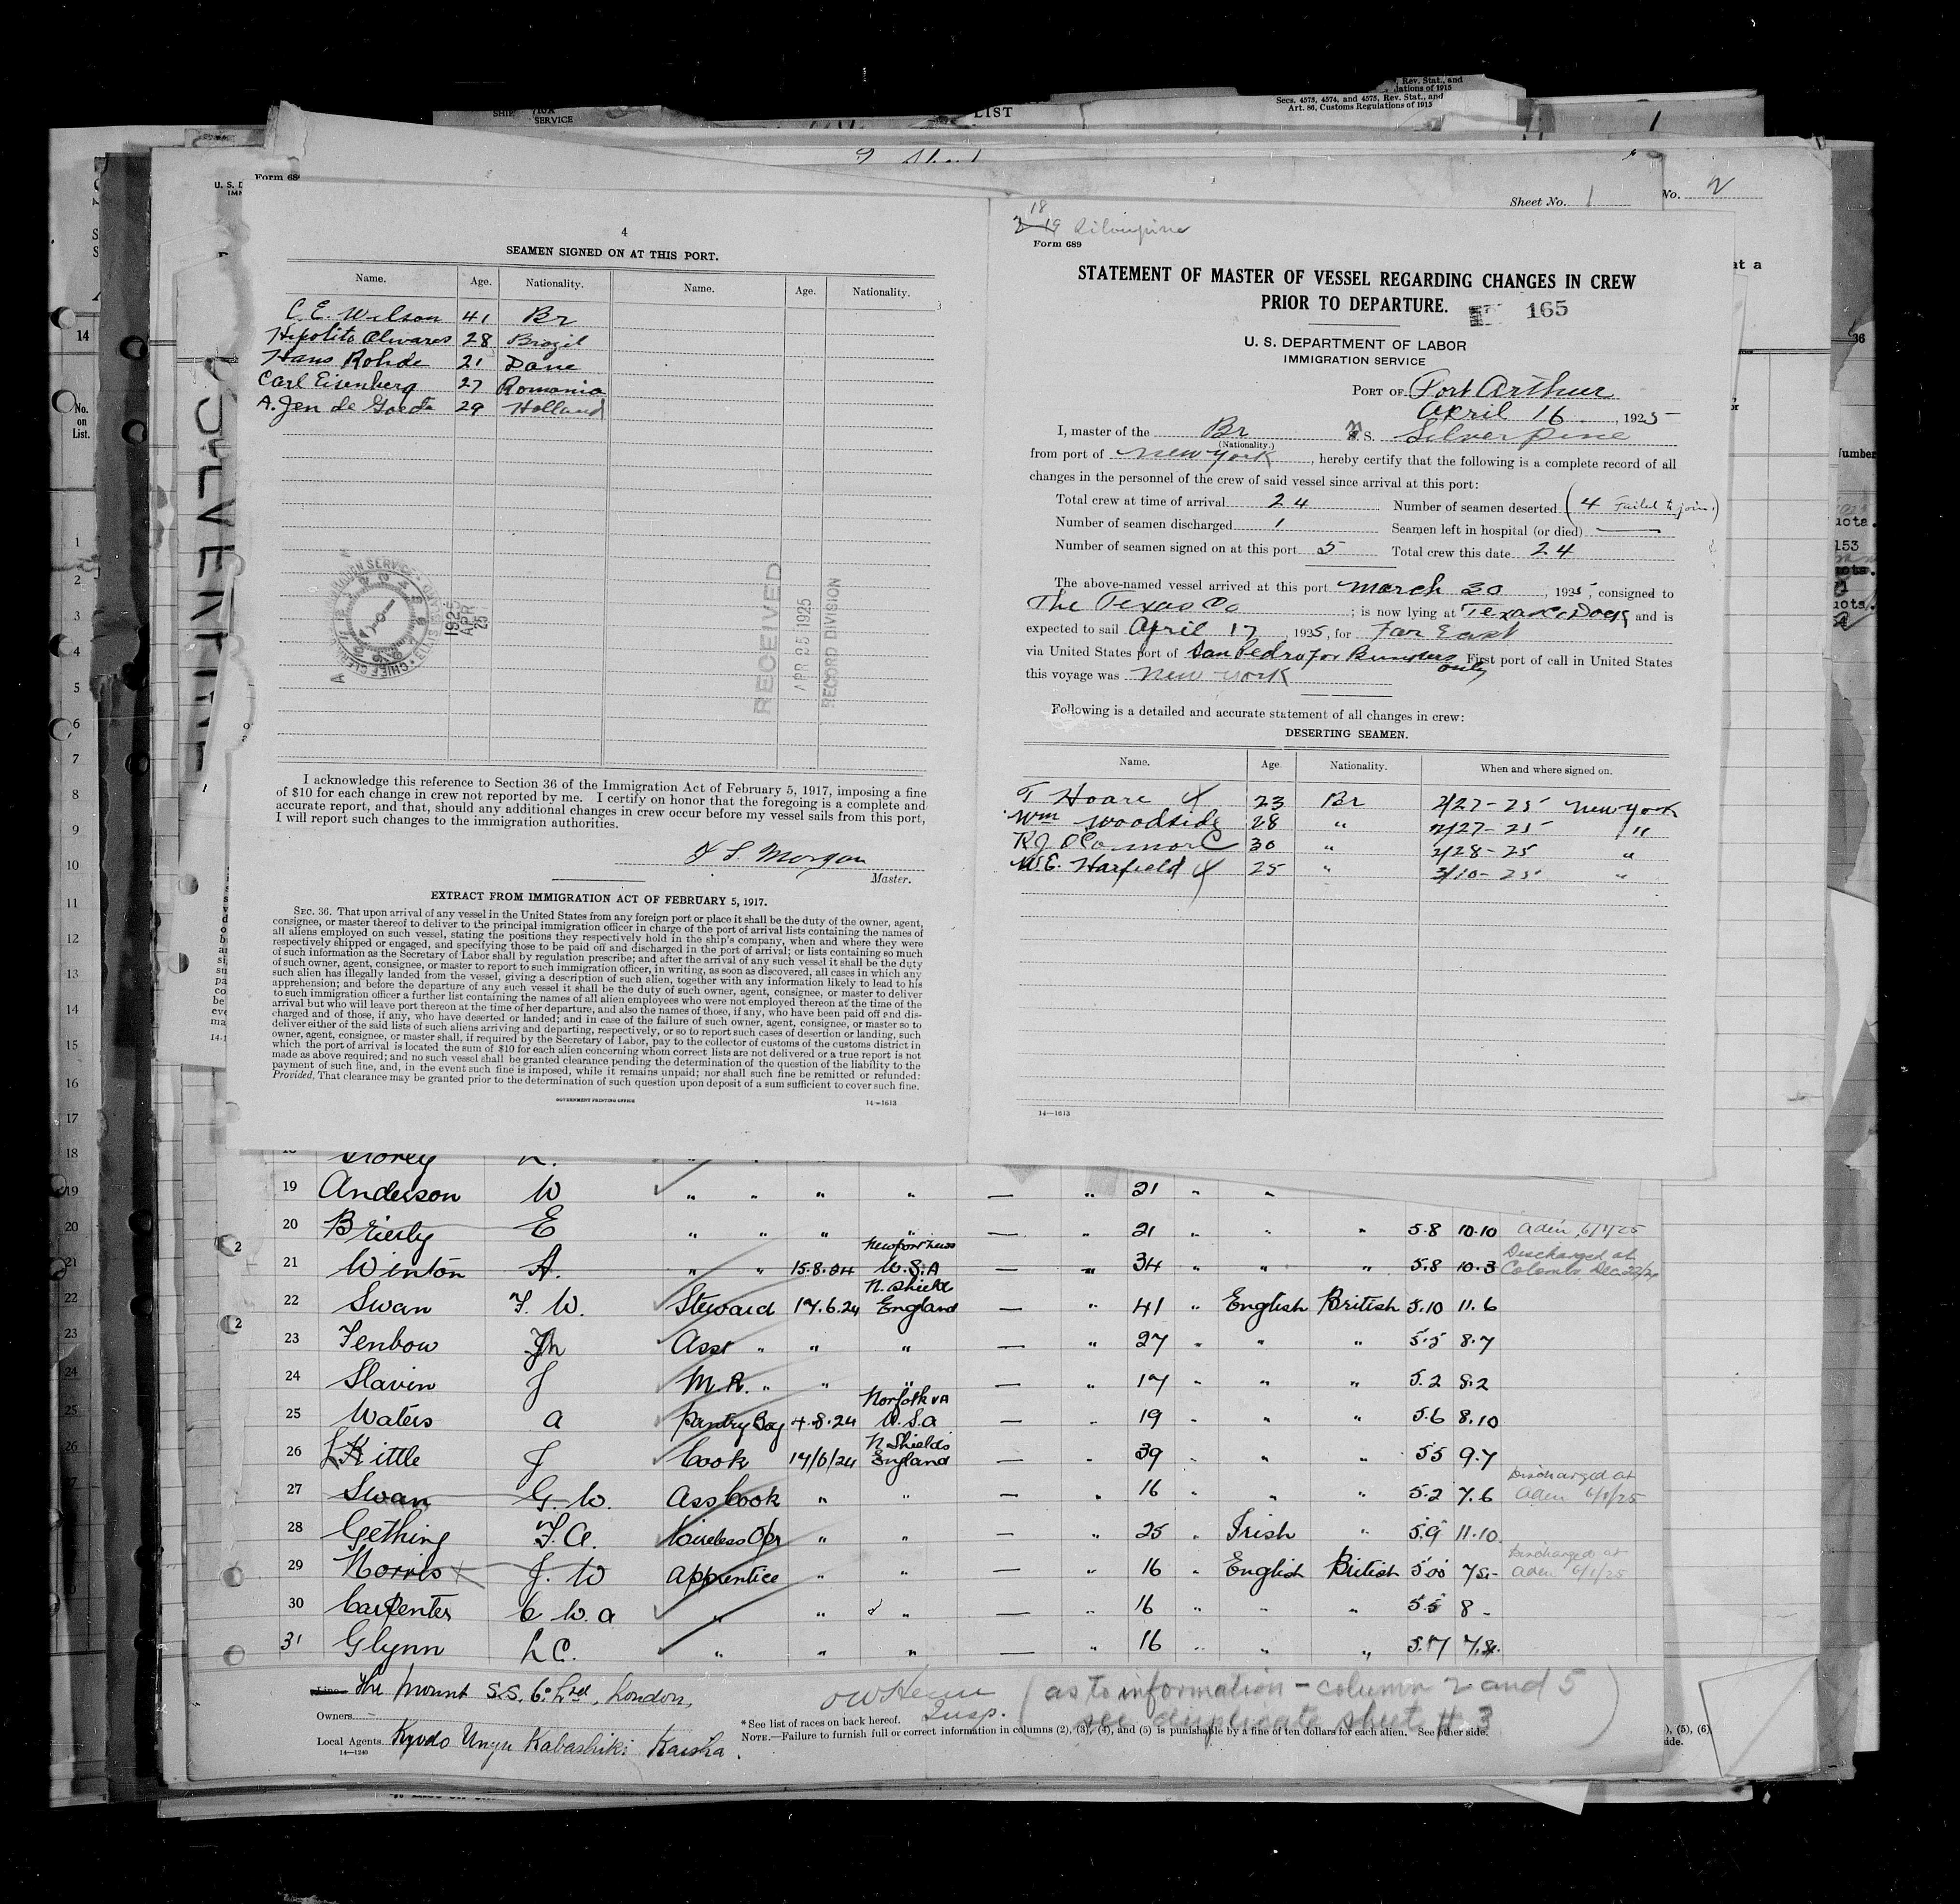 SHIP
SERVICE
LIST
Rev. Stat., and
Secs. 4573, 4574, and 4575, Rev. Stat., and
Art. 86, Customs Regulations of 1915
Sheet No. 1
No. 2
4
SEAMEN SIGNED ON AT THIS PORT.
Name. Age. Nationality. Name. Age. Nationality.
C. E. Wilson 41 Br
Hipolito Olivares 28 Brazil
Hans Rohde 21 Dane
Carl Eisenberg 27 Romania
A. Jen de Goede 29 Holland
RECEIVED
APR 25 1925
RECORD DIVISION
1925
APR
25
I acknowledge this reference to Section 36 of the Immigration Act of February 5, 1917, imposing a fine
of $10 for each change in crew not reported by me. I certify on honor that the foregoing is a complete and
accurate report, and that, should any additional changes in crew occur before my vessel sails from this port,
I will report such changes to the immigration authorities.
Morgan
Master.
EXTRACT FROM IMMIGRATION ACT OF FEBRUARY 5, 1917.
SEC. 36. That upon arrival of any vessel in the United States from any foreign port or place it shall be the duty of the owner, agent,
consignee, or master thereof to deliver to the principal immigration officer in charge of the port of arrival lists containing the names of
all aliens employed on such vessel, stating the positions they respectively hold in the ship's company, when and where they were
respectively shipped or engaged, and specifying those to be paid off and discharged in the port of arrival; or lists containing so much
of such information as the Secretary of Labor shall by regulation prescribe; and after the arrival of any such vessel it shall be the duty
of such owner, agent, consignee, or master to report to such immigration officer, in writing, as soon as discovered, all cases in which any
such alien has illegally landed from the vessel, giving a description of such alien, together with any information likely to lead to his
apprehension; and before the departure of any such vessel it shall be the duty of such owner, agent, consignee, or master to deliver
to such immigration officer a further list containing the names of all alien employees who were not employed thereon at the time of the
arrival but who will leave port thereon at the time of her departure, and also the names of those, if any, who have been paid off and dis-
charged and of those, if any, who have deserted or landed; and in case of the failure of such owner, agent, consignee, or master so to
deliver either of the said lists of such aliens arriving and departing, respectively, or so to report such cases of desertion or landing, such
owner, agent, consignee, or master shall, if required by the Secretary of Labor, pay to the collector of customs of the customs district in
which the port of arrival is located the sum of $10 for each alien concerning whom correct lists are not delivered or a true report is not
made as above required; and no such vessel shall be granted clearance pending the determination of the question of the liability to the
payment of such fine, and, in the event such fine is imposed, while it remains unpaid; nor shall such fine be remitted or refunded:
Provided, That clearance may be granted prior to the determination of such question upon deposit of a sum sufficient to cover such fine.
GOVERNMENT PRINTING OFFICE 14—1613
18
2-19 Silverpine
Form 689
STATEMENT OF MASTER OF VESSEL REGARDING CHANGES IN CREW
PRIOR TO DEPARTURE.
165
U. S. DEPARTMENT OF LABOR
IMMIGRATION SERVICE
PORT OF Port Arthur
April 16, 1925
I, master of the Br S. Silverpine
(Nationality.)
from port of New York, hereby certify that the following is a complete record of all
changes in the personnel of the crew of said vessel since arrival at this port:
Total crew at time of arrival 24 Number of seamen deserted (4 Failed to join.)
Number of seamen discharged 1 Seamen left in hospital (or died) —
Number of seamen signed on at this port 5 Total crew this date 24
The above-named vessel arrived at this port March 30, 1925, consigned to
The Texas Co; is now lying at Texas Co Dock and is
expected to sail April 17, 1925, for Far East
via United States port of San Pedro for Bunkers only First port of call in United States
this voyage was New York
Following is a detailed and accurate statement of all changes in crew:
DESERTING SEAMEN.
Name. Age. Nationality. When and where signed on.
T Hoare 23 Br 2/27-25 New York
Wm Woodside 28 " 2/27-25 "
R.J. O'Connor 30 " 2/28-25 "
W.E. Harfield 25 " 3/10-25 "
14—1613
18 Storey L.
19 Anderson W " " " " — " 21 " "
20 Brierly E " " " " — " 21 " " " 5.8 10.10 Aden, 6/1/25
21 Winton A. " " 15.8.24 Newport News U.S.A — " 34 " " " 5.8 10.3 Discharged at Colombo Dec 22/24
22 Swan F. W. Steward 17.6.24 N. Shields England — " 41 " English British 5.10 11.6
23 Tenbow Jn Asst " " " — " 27 " " " 5.5 8.7
24 Slavin J M.R. " " " — " 17 " " " 5.2 8.2
25 Waters A Pantry Boy 4.8.24 Norfolk VA U.S.A — " 19 " " " 5.6 8.10
26 Kittle J Cook 17/6/24 N. Shields England — " 39 " " " 5.5 9.7
27 Swan G. W. Ass Cook " " — " 16 " " " 5.2 7.6 Discharged at Aden 6/1/25
28 Gething F. A. Wireless Opr " " — " 25 " Irish " 5.9 11.10
29 Norris J. W Apprentice " " — " 16 " English British 5.00 7.5- Discharged at Aden 6/1/25
30 Carpenter C W. A " " " — " 16 " " " 5.5 8 -
31 Glynn L C. " " " — " 16 " " " 5.7 7.8.
Line The Mount S.S. Co Ltd, London,
Owners
Local Agents Kyodo Unyu Kabashiki Kaisha.
14—1240
Insp.
(as to information – column 2 and 5
see duplicate sheet # 3)
*See list of races on back hereof.
NOTE.—Failure to furnish full or correct information in columns (2), (3), (4), and (5) is punishable by a fine of ten dollars for each alien. See other side.